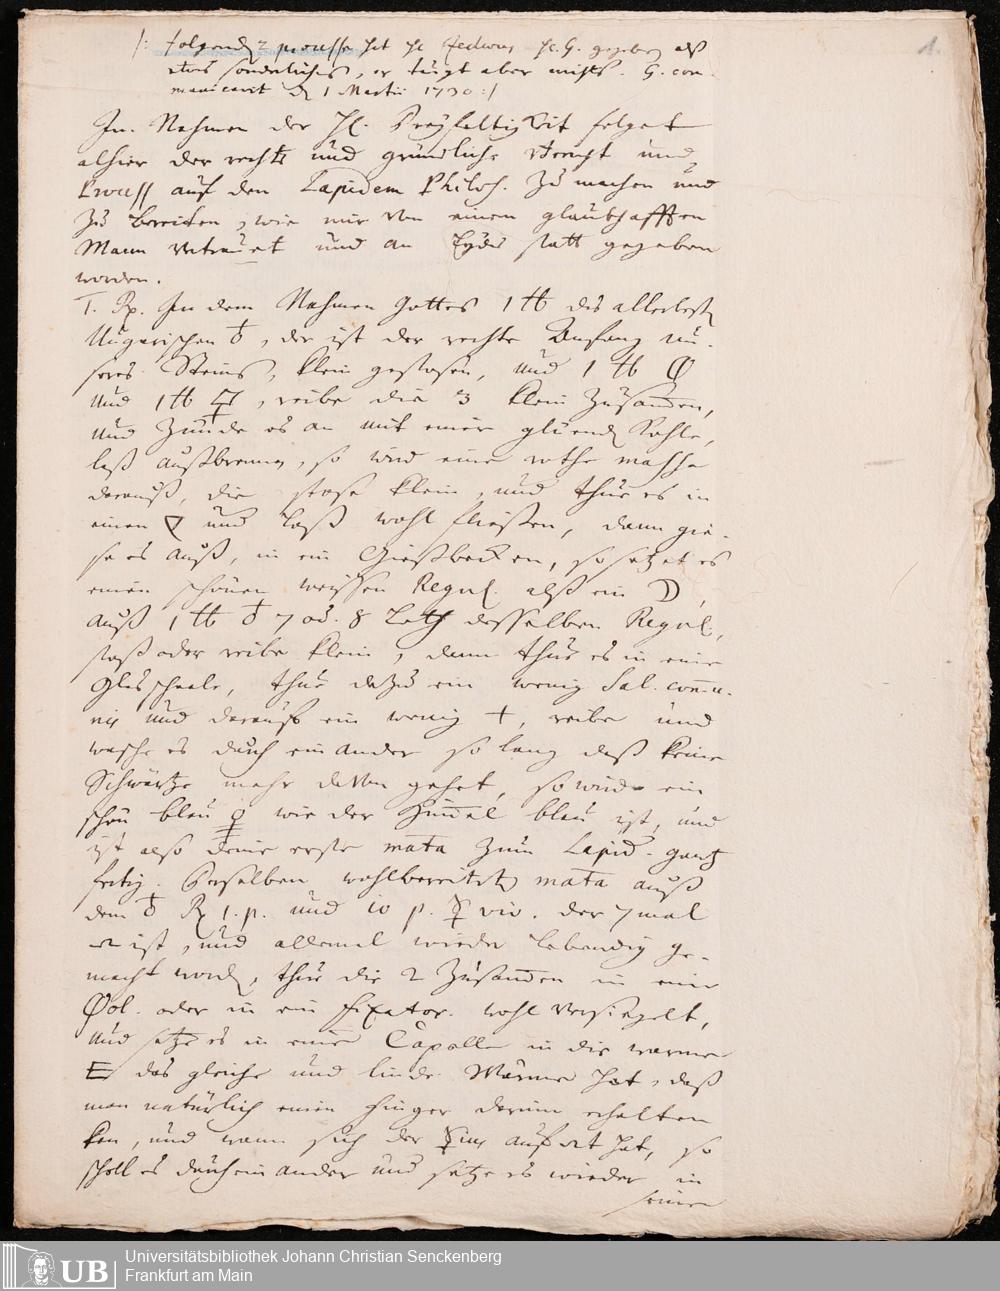 /: folgende 2 processe hat H. Hedwig H. G. gegeben alß
etwas sonderliches, er taugt aber nichts. G. com-
municavit d. 1 Martii 1730 :/
Im Nahmen der Hl. Dreyfaltigkeit folget
alhier der rechte und gründliche und
Process auf den Lapidem Philos. zu machen und
zu bereiten, wie mir von einem glaubhafften
Mann vertrauet und an Eydes statt gegeben
worden.
I. Rp. In dem Nahmen Gottes 1 ℔ des allerbesten
Ungarischen ♁, der ist der rechte Anfang un-
seres Steins, klein gestosen, und 1 ℔
und 1 ℔ , reibe die 3 klein zusammen,
und zünde es an mit einer gluenden Kohle,
laß außbrennen, so wird eine rothe massa
darauß, die stose klein, und thue es in
einen 🜄 und laß wohl fließen, dann gie-
se es auß, in ein Gießbecken, so setzet es
einen schönen weissen Regul. alß ein ☽,
auß 1 ℔ ♁ 7 od. 8 Loth desselben Regul.,
stoß oder reibe klein, dann thue es in eine
Glasschaale, thue dazu ein wenig Sal. commu-
nis und darauff ein wenig +, reibe und
wasche es durch einander so lang daß keine
Schwärtze mehr davon gehet, so wird ein
schön blau wie der Himmel blau ist, und
ist also deine erste mata zum Lapid. gantz
fertig. Derselben wohlbereiteten mata auß
dem ♁ Rp 1. p. und 10 p. ☿ viv. der 7 mal
ist, und allemal wieder lebendig ge-
macht worden, thue die 2 zusammen in eine
ol. oder in ein fixator. wohl versiegelt,
und setze es in eine Capelle in die warme
das gleiche und linde Wärme hat, daß
man natürlich einen Finger darinn erhalten
kan, und wann sich der ☿ius auf hat, so
schell es durcheinander und setze es wieder in
seinen
1.
Universitätsbibliothek Johann Christian Senckenberg
Frankfurt am Main
UB